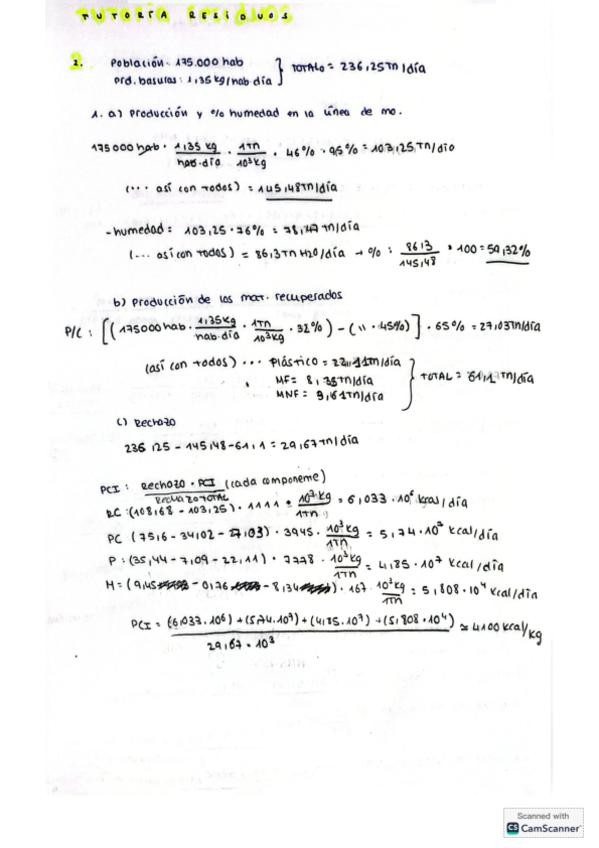 TUTORÍA RESIDUOS
2. Población: 175.000 hab
Prd. basuras: 1,35 kg/hab día } TOTAL = 236,25 Tn/día
1. a) Producción y % humedad en la línea de mo.
175000 hab · 1,35 kg / hab·día · 1Tn / 10³kg · 46% · 95% = 103,25 Tn/día
(... así con todos) = 145,48 Tn/día
- humedad = 103,25 · 76% = 78,47 Tn/día
(... así con todos) = 86,3 Tn H2O/día → % = 86,3 / 145,48 · 100 = 59,32%
b) Producción de los mat. recuperados
P/C: [(175000 hab · 1,35kg / hab·día · 1Tn / 10³kg · 32%) - (" · 45%)] · 65% = 27,03 Tn/día
(así con todos) ... Plástico = 22,11 Tn/día
MF = 8,35 Tn/día
MNF = 9,61 Tn/día } TOTAL = 61,1 Tn/día
c) Rechazo
236,25 - 145,48 - 61,1 = 29,67 Tn/día
PCI: Rechazo · PCI (cada componente) / RECHAZO TOTAL
RC: (108,68 - 103,25) · 1111 · 10³ kg / 1Tn = 6,033 · 10⁶ kcas/día
PC (75,6 - 34,02 - 27,03) · 3945 · 10³ kg / 1Tn = 5,74 · 10⁷ kcal/día
P: (35,44 - 7,09 - 22,11) · 7778 · 10³ kg / 1Tn = 4,85 · 10⁷ kcal/día
M = (9,45 - 0,76 - 8,34) · 167 · 10³ kg / 1Tn = 5,808 · 10⁴ kcal/día
PCI = (6,033 · 10⁶) + (5,74 · 10⁷) + (4,85 · 10⁷) + (5,808 · 10⁴) / 29,67 · 10³ ≈ 4100 kcal/kg
Scanned with
CS CamScanner